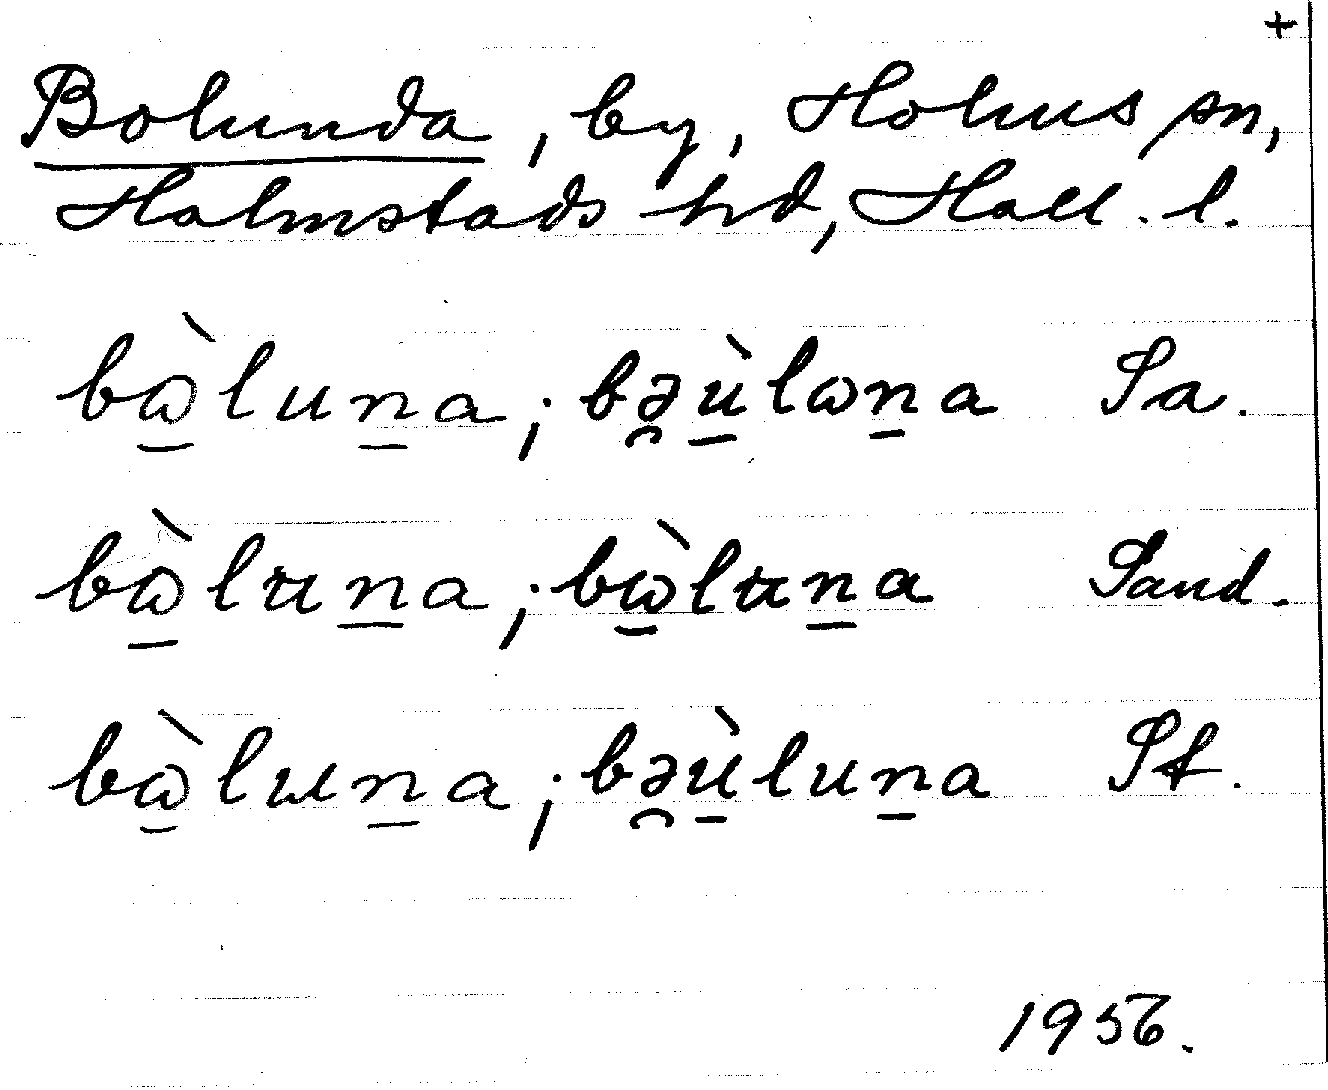 +
Bolunda, by, Holms sn,
Halmstads hd, Hall. l.
bὼ̱luṉa; bə̯ù̱lωṉa Sa.
bὼ̱luṉa; bὼ̱luṉa Sand.
bὼ̱luṉa; bə̯ù̱luṉa St.
1956.